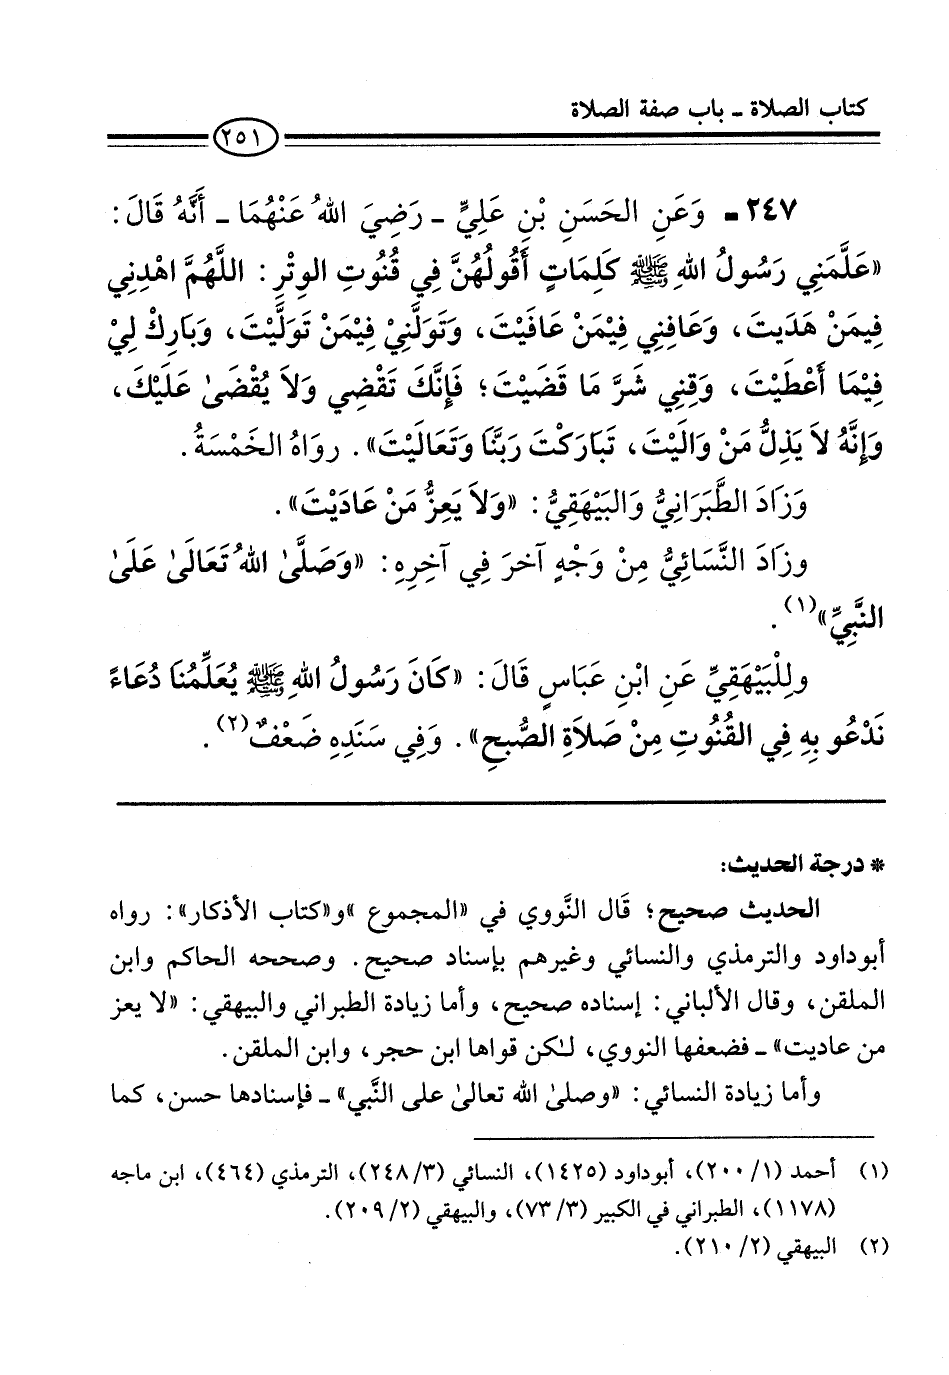 كتاب الصلاة ــ باب صفة الصلاة
٢٥١
٢٤٧ ــ وَعَنِ الحَسَنِ بْنِ عَلِيٍّ ــ رَضِيَ اللهُ عَنْهُمَا ــ أَنَّهُ قَالَ:
«عَلَّمَنِي رَسُولُ اللهِ ﷺ كَلِمَاتٍ أَقُولُهُنَّ فِي قُنُوتِ الوِتْرِ: اللَّهُمَّ اهْدِنِي
فِيمَنْ هَدَيتَ، وَعَافِنِي فِيمَنْ عَافَيْتَ، وَتَوَلَّنِيْ فِيْمَنْ تَوَلَّيْتَ، وَبَارِكْ لِيْ
فِيْمَا أَعْطَيْتَ، وَقِنِي شَرَّ مَا قَضَيْتَ؛ فَإِنَّكَ تَقْضِي وَلاَ يُقْضَىٰ عَلَيْكَ،
وَإِنَّهُ لاَ يَذِلُّ مَنْ وَالَيْتَ، تَبَارَكْتَ رَبَّنَا وَتَعَالَيْتَ». رواهُ الخَمْسَةُ.
وَزَادَ الطَّبَرَانِيُّ وَالبَيْهَقِيُّ: «وَلاَ يَعِزُّ مَنْ عَادَيْتَ».
وزَادَ النَّسَائِيُّ مِنْ وَجْهٍ آخرَ فِي آخِرِهِ: «وَصَلَّىٰ اللهُ تَعَالَىٰ عَلَىٰ
النَّبِيِّ»(١).
ولِلْبَيْهَقِيِّ عَنِ ابْنِ عَبَاسٍ قَالَ: «كَانَ رَسُولُ اللهِ ﷺ يُعَلِّمُنَا دُعَاءً
نَدْعُو بِهِ فِي القُنُوتِ مِنْ صَلاَةِ الصُّبحِ». وَفِي سَنَدِهِ ضَعْفٌ(٢).
* درجة الحديث:
الحديث صحيح؛ قَال النَّووي في «المجموع» و«كتاب الأذكار»: رواه
أبوداود والترمذي والنسائي وغيرهم بإسناد صحيح. وصححه الحاكم وابن
الملقن، وقال الألباني: إسناده صحيح، وأما زيادة الطبراني والبيهقي: «لا يعز
من عاديت» ــ فضعفها النووي، لـٰكن قواها ابن حجر، وابن الملقن.
وأما زيادة النسائي: «وصلىٰ الله تعالىٰ على النَّبي» ــ فإسنادها حسن، كما
(١) أحمد (٢٠٠/١)، أبوداود (١٤٢٥)، النسائي (٢٤٨/٣)، الترمذي (٤٦٤)، ابن ماجه
(١١٧٨)، الطبراني في الكبير (٧٣/٣)، والبيهقي (٢٠٩/٢).
(٢) البيهقي (٢١٠/٢).